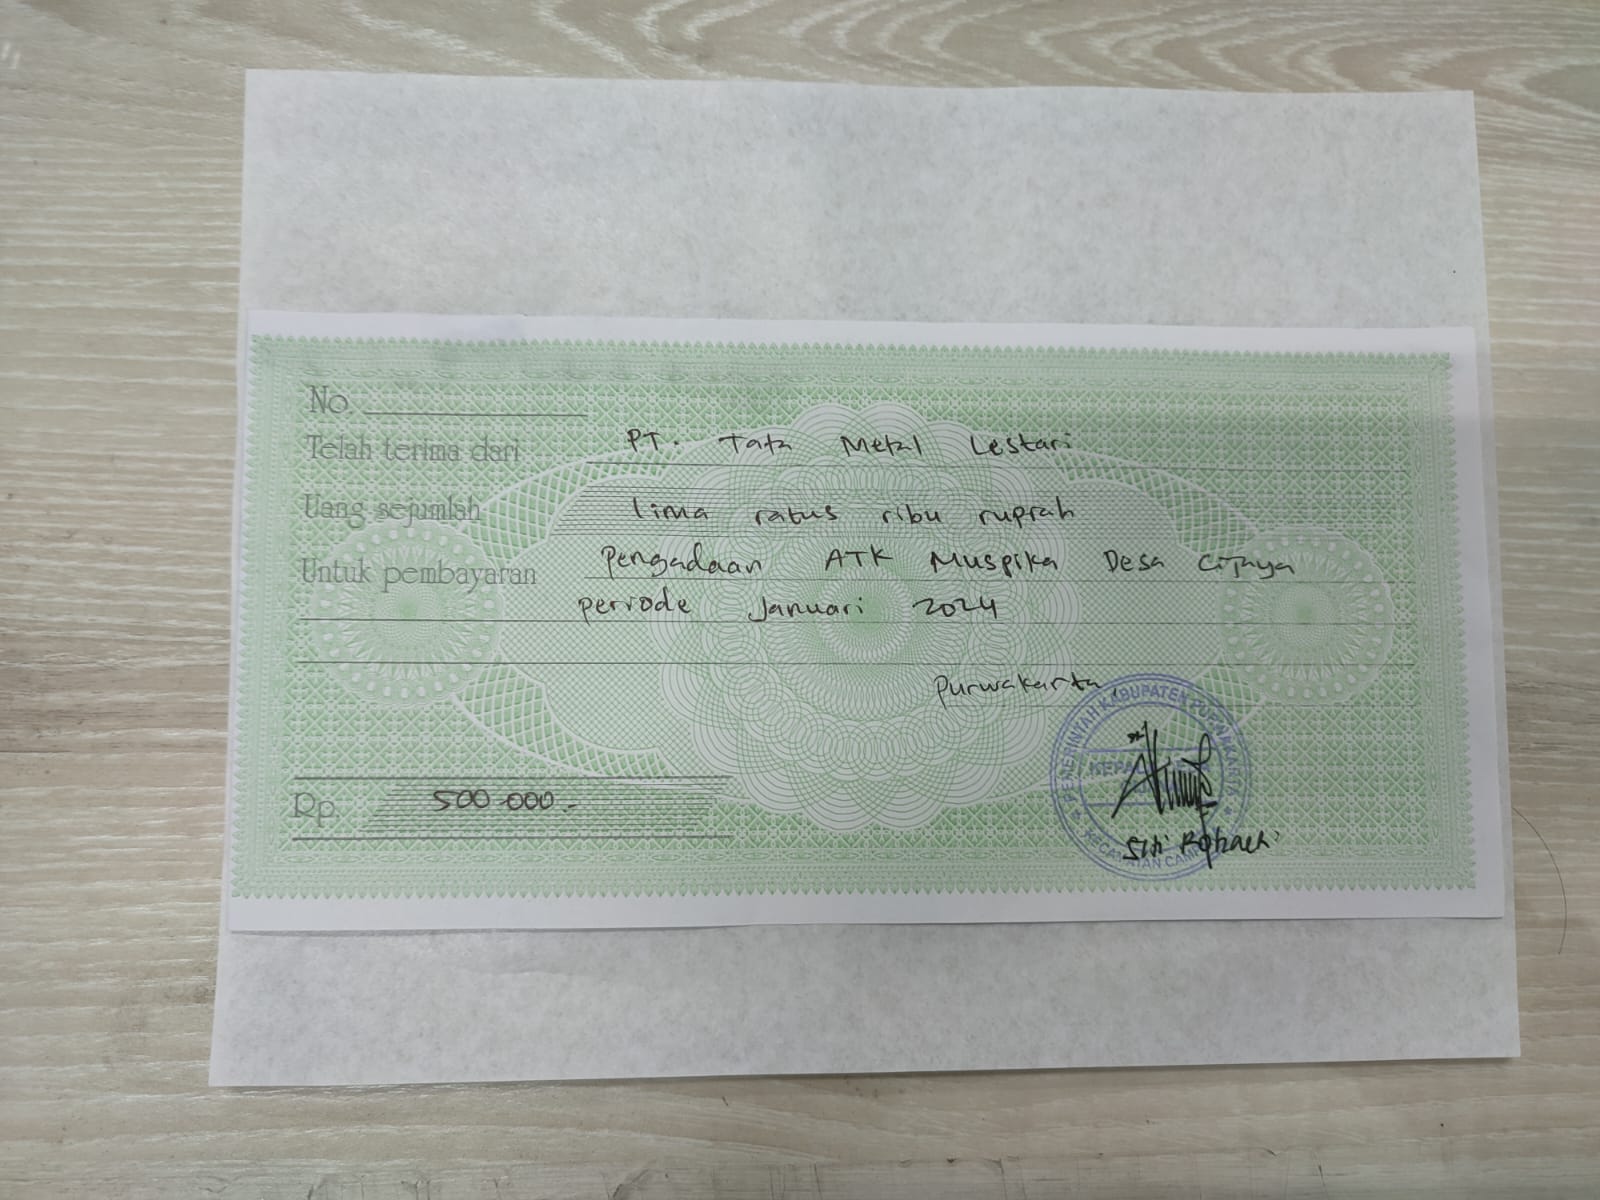 No.
Telah terima dari PT. Tata Metal Lestari
Uang sejumlah lima ratus ribu rupiah
Untuk pembayaran Pengadaan ATK Muspika Desa Cijaya
periode Januari 2024
Purwakarta,
PEMERINTAH KABUPATEN PURWAKARTA
KEPALA
KECAMATAN
Rp. 500.000.-
Siti